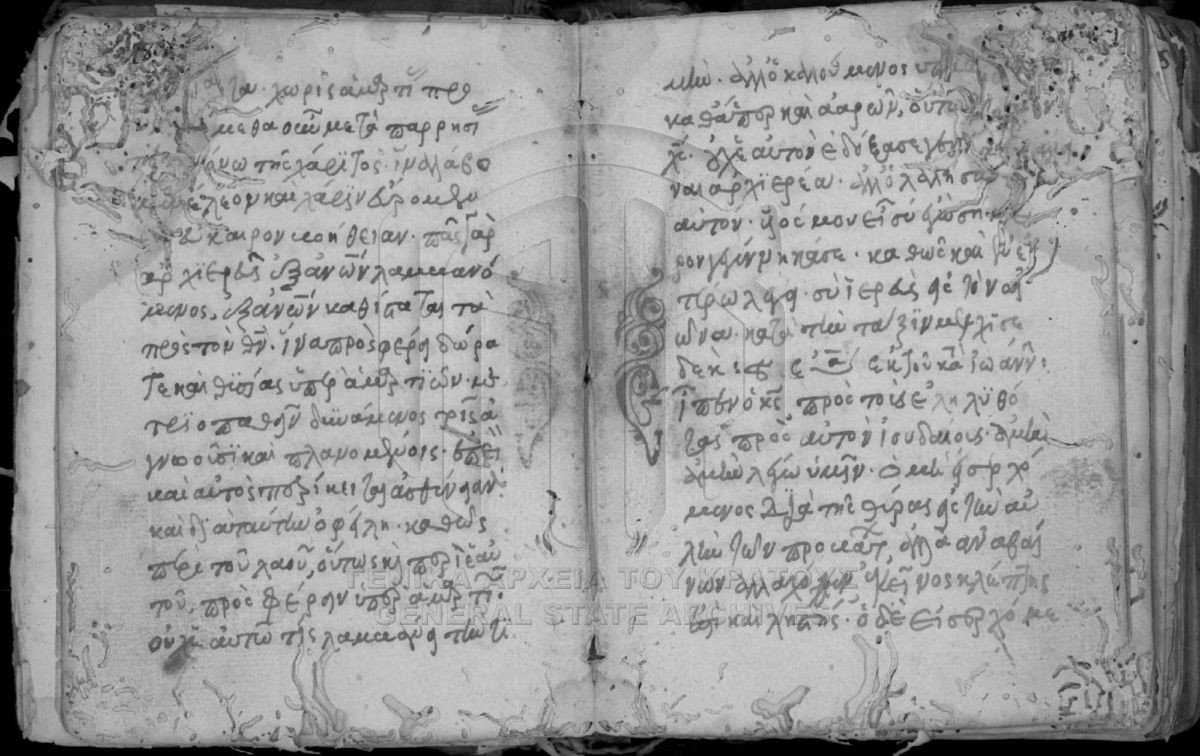 χωρὶς ἁμαρτί προσ
μεθα οὖν μετὰ παρρησί
τῆς χάριτος· ἵνα λάβω
ἔλεον καὶ χάριν εὕρομεν
εὔκαιρον βοήθειαν· πᾶς γὰρ
ἀρχϊερεὺς ἐξ ἀνων λαμβανό
μενος, ἐξ ἀνων καθίσταται τὰ
πρὸς τὸν θν· ἵνα προσφέρη δῶρα
τε καὶ θϋσίας ὑπὲρ ἁμαρτιῶν· με
τριοπαθεῖν δϋνάμενος τοῖς ἀ
γνοοῦσϊ καὶ πλανομένοις· ἐπεὶ
καὶ αὐτὸς περίκειται ἀσθένειαν·
καὶ δϊ αὐταύτην ὀφείλη· καθὼς
περὶ τοῦ λαοῦ, οὕτως κὶ περὶ ἑαυ
τοῦ, προσφέρειν ὑπὲρ ἁμαρτι·
οὐχ ἑαυτῶ τίς λαμβάνει τὴν τϊ
μὴν· ἀλλ ὁ καλούμενος ὑπὸ
καθάπερ καὶ ἀαρών, οὕτω
χς· οὐχ ἑαυτὸν ἐδόξασε γενη
ναι αρχϊερέα· ἀλλ ὁ λαλήσας
αὐτον· υἱός μου εἶ σύ ἐγὼ σήμε
ρον γεγένηκά σε· καθὼς καὶ ἐν ἑτ
τέρω λέγει· σὺ ἱερεὺς εἰς τὸν αἰ
ῶνα· κατὰ τὴν τάξϊν μελχϊσε
δέκ: εκ τοῦ κατὰ ἰωάνν:
εἶπεν ὁ κς πρὸς τοὺς ἐληλϋθό
τας πρὸς αὐτὸν ἰουδαίους· ἀμὴν
ἀμὴν λέγω ὑμῖν· ὁ μὴ εἰσερχό
μενος διὰ τῆς θύρας εἰς τὴν αὐ
λὴν τῶν προβάτ, ἀλλὰ ἀναβαί
νων ἀλλαχόθεν, ἐκεῖνος κλέπτης
ἐστὶ καὶ ληστής· ὁ δὲ εἰσερχόμε
ΓΕΝΙΚΑ ΑΡΧΕΙΑ ΤΟΥ ΚΡΑΤΟΥΣ
GENERAL STATE ARCHIVES